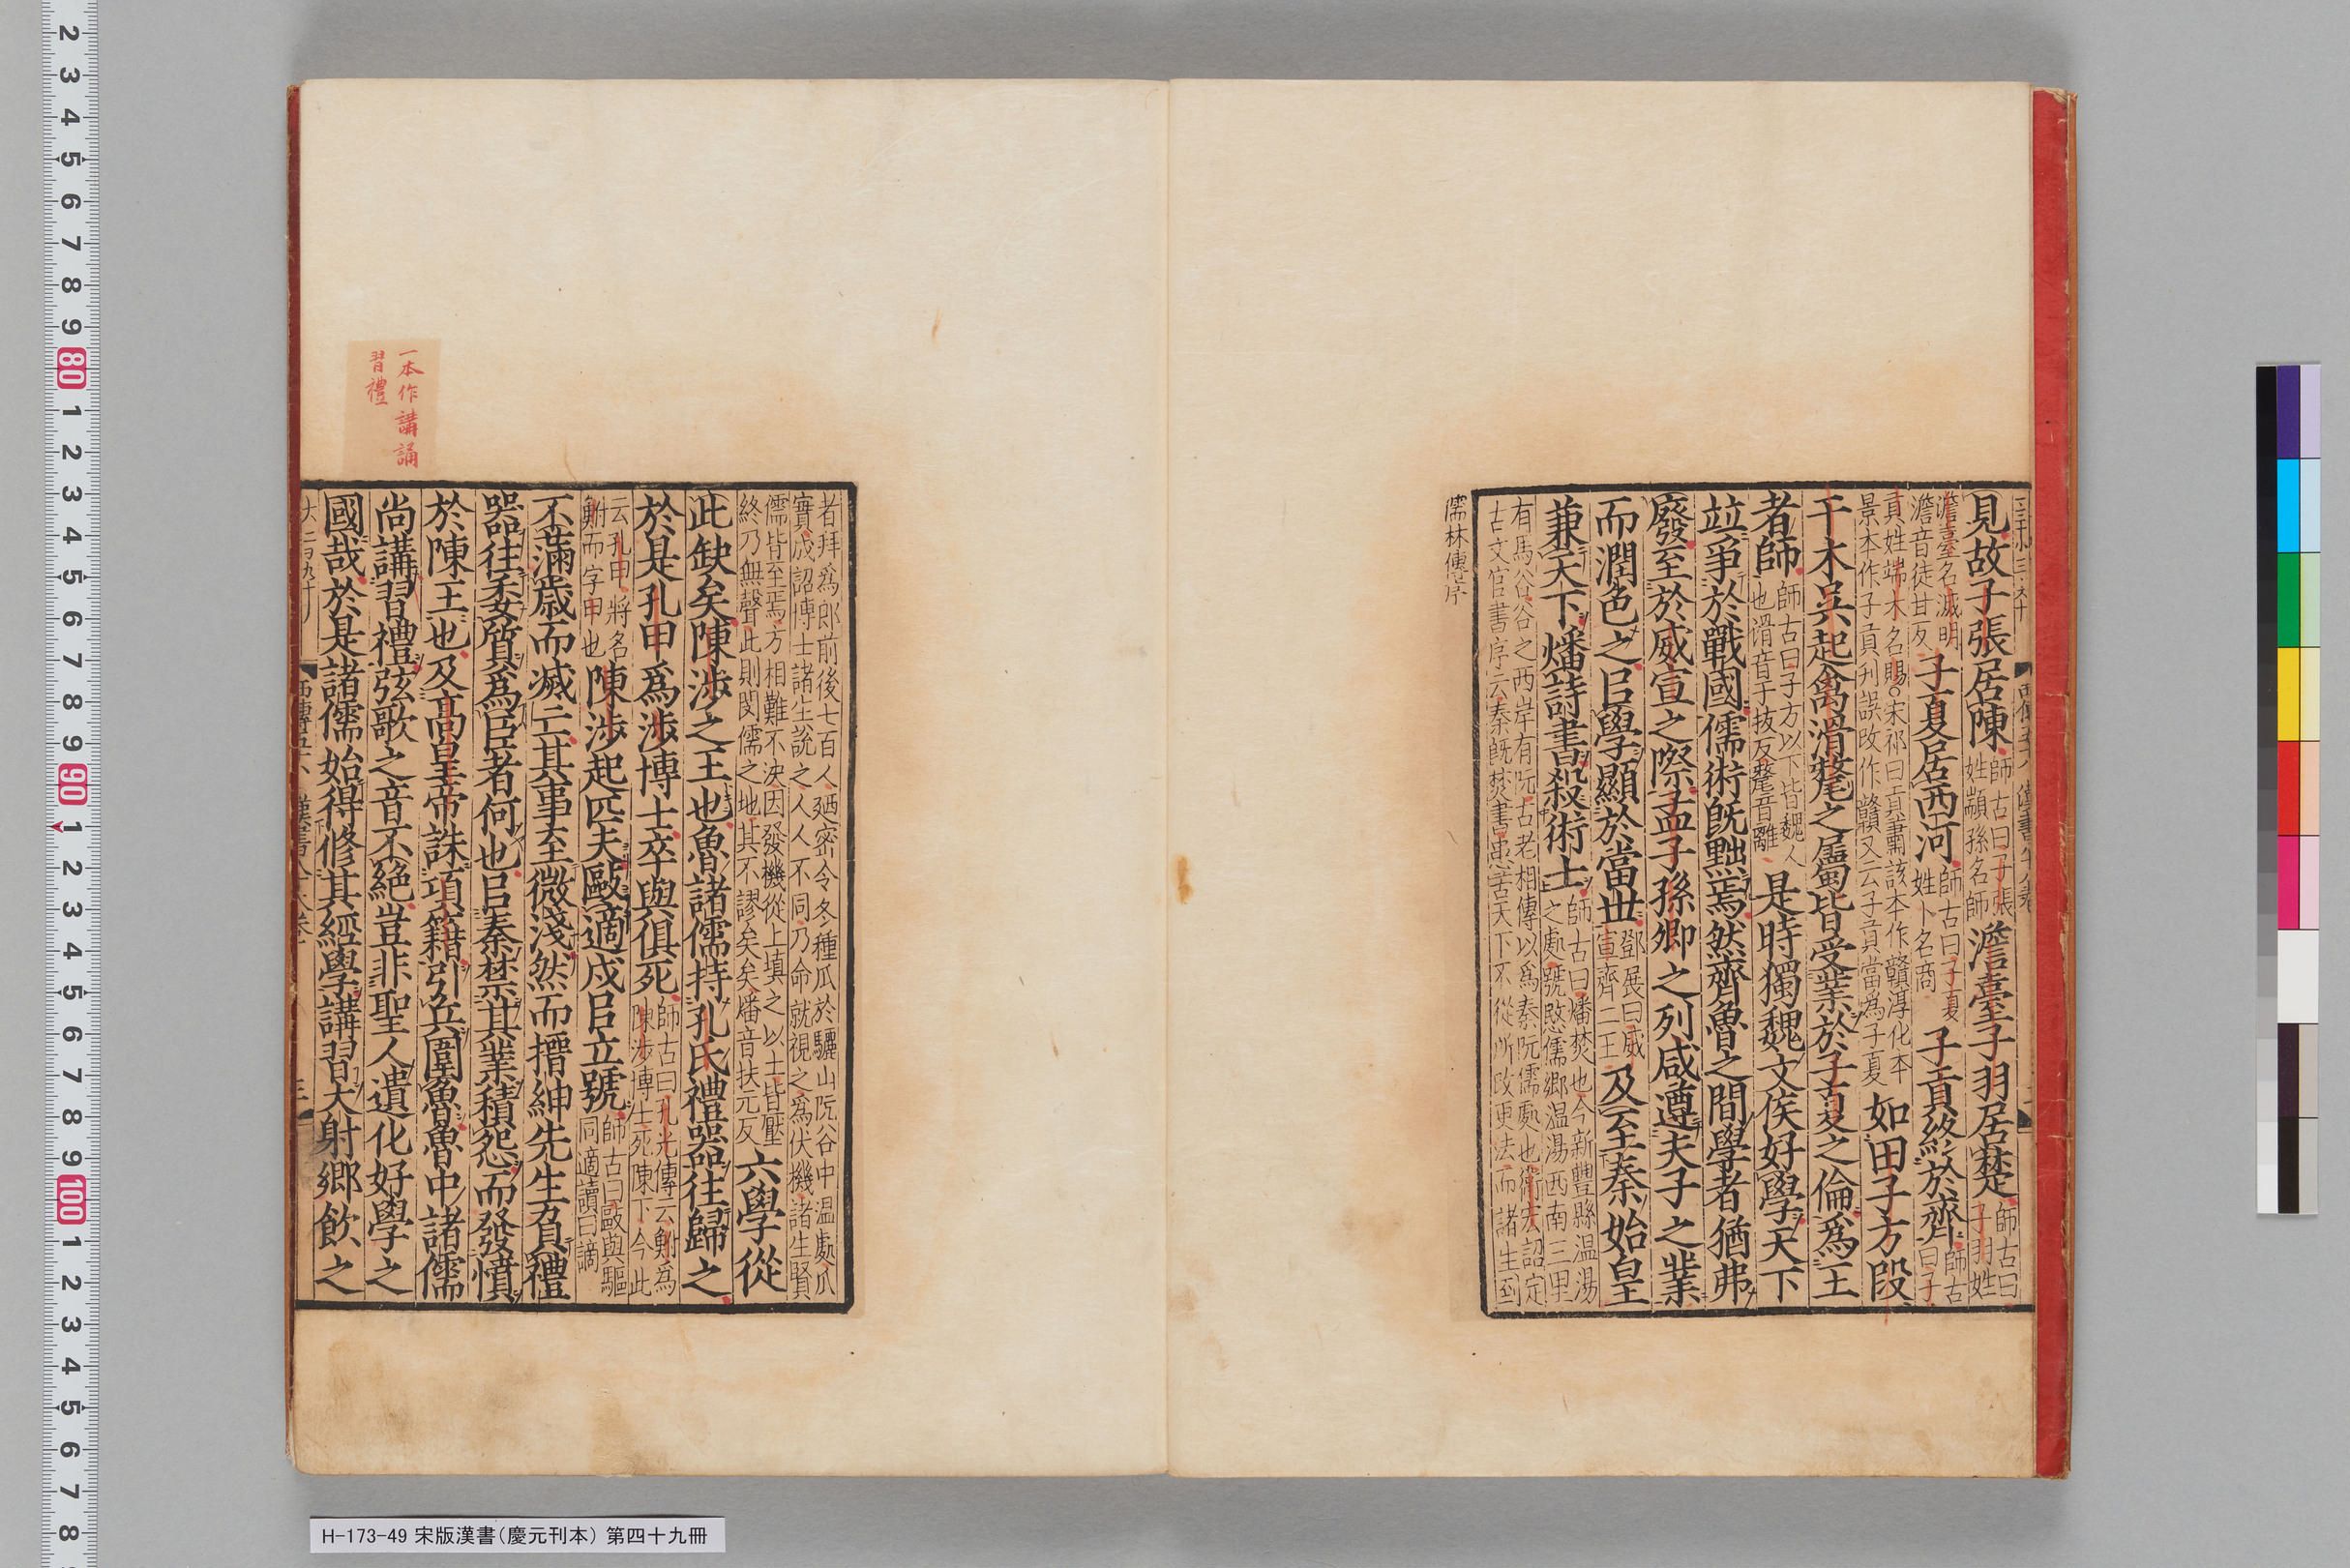 見故子張居陳師古曰子張姓顓孫名師澹臺子羽居楚師古曰子羽姓
澹臺名滅明澹音徒甘反子夏居西河師古曰子夏姓卜名商子貢終於齊師古曰子
貢姓端木名賜○宋祁曰貢肅該本作贛淳化本景本作子貢刋誤改作贛又云子貢當爲子夏如田子方段
干木吳起禽滑氂之屬皆受業於子夏之倫爲王
者師師古曰子方以下皆魏人也滑音于拔反氂音離是時獨魏文侯好學天下
竝爭於戰國儒術旣黜焉然齊魯之間學者猶弗
廢至於威宣之際孟子孫卿之列咸遵夫子之業
而潤色之㠯學顯於當世鄧展曰威宣齊二王及至秦始皇
兼天下燔詩書殺術士師古曰燔焚也今新豐縣温湯之處號愍儒鄉温湯西南三里
有馬谷谷之西岸有阬古老相傳以爲秦阬儒處也衛宏詔定古文官書序云秦旣焚書患苦天下不從所改更法而諸生到
儒林傳序
者拜爲郎前後七百人廼密令冬種瓜於驪山阬谷中温處瓜實成詔博士諸生說之人人不同乃命就視之爲伏機諸生賢
儒皆至焉方相難不決因發機從上填之以土皆壓終乃無聲此則閔儒之地其不謬矣矣燔音扶元反六學從
此缺矣陳涉之王也魯諸儒持孔氏禮器往歸之
於是孔甲爲涉博士卒與俱死師古曰孔光傳云鮒爲陳涉博士死陳下今此
云孔甲將名鮒而字甲也陳涉起匹夫敺適戍㠯立號師古曰敺與驅同適讀曰謫
不滿歲而滅亡其事至微淺然而搢紳先生負禮
器往委質爲臣者何也㠯秦禁其業積怨而發憤
於陳王也及高皇帝誅項籍引兵圍魯魯中諸儒
尚講習禮弦歌之音不絶豈非聖人遺化好學之
國哉於是諸儒始得修其經學講習大射鄉飲之
一本作講誦
習禮
H-173-49 宋版漢書(慶元刊本) 第四十九冊